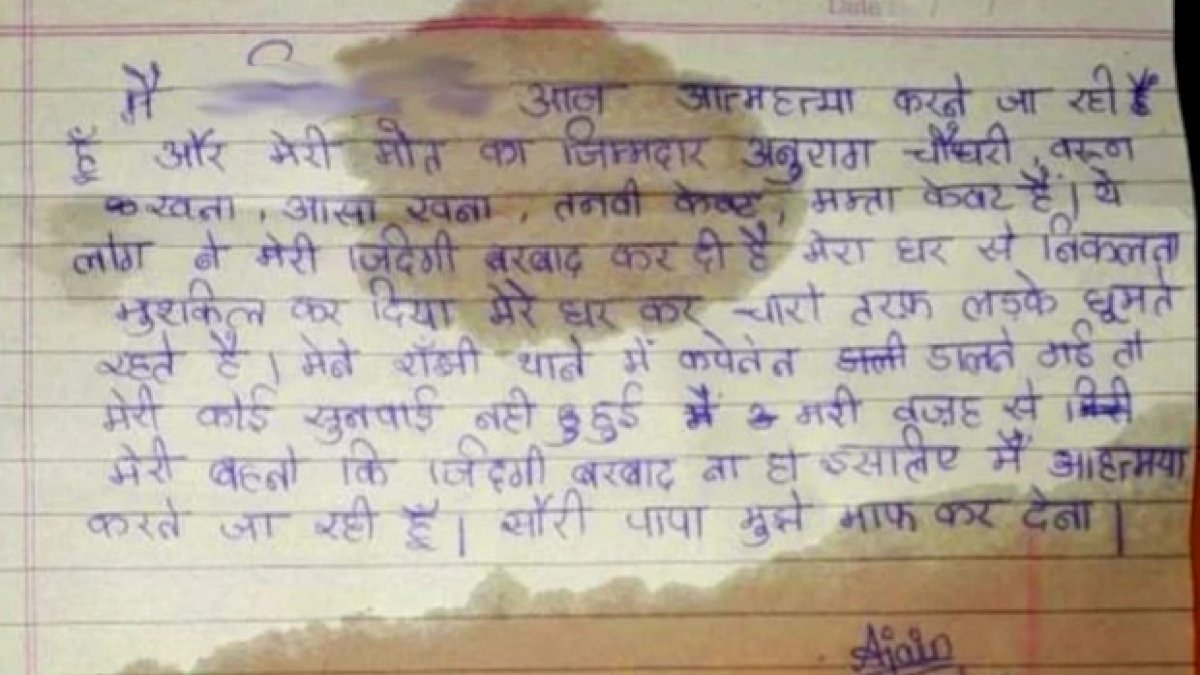 मै आज आत्महत्या करने जा रही है
हूँ और मेरी मौत का जिम्मदार अनुराग चौधरी, वरून
खना, आसा खना, तनवी केवट, ममता केवट हैं। ये
लोग ने मेरी जिंदगी बरबाद कर दी है मेरा घर से निकलता
मुशकिल कर दिया मेरे घर कर चारो तरफ़ लड़के घूमते
रहते है। मेने राँझी थाने में कपेलेन डालते गई तो
मेरी कोई सुनवाई नही हुई मै मरी वजह से
मेरी बहनो कि जिंदगी बरबाद ना हो इसलिए मैं आहत्मया
करने जा रही हूँ। सौरी पापा मुझे माफ कर देना।
Ajain